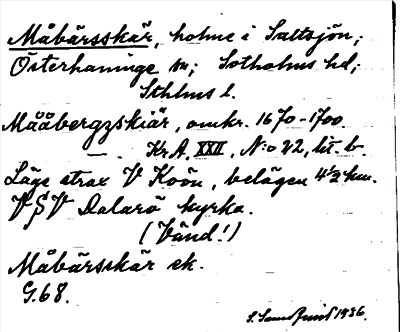 Måbärsskär, holme i Saltsjön;
Österhaninge sn; Sotholms hd;
Sthlms l.
Mååbergzskiär, omkr. 1670-1700.
—. Kr.A, XXII, N:o 22, lit. b.
Läge strax V Koön, belägen 4½ km.
V§V Dalarö kyrka.
(Vänd!)
Måbärsskär ek.
G.68.
1936.